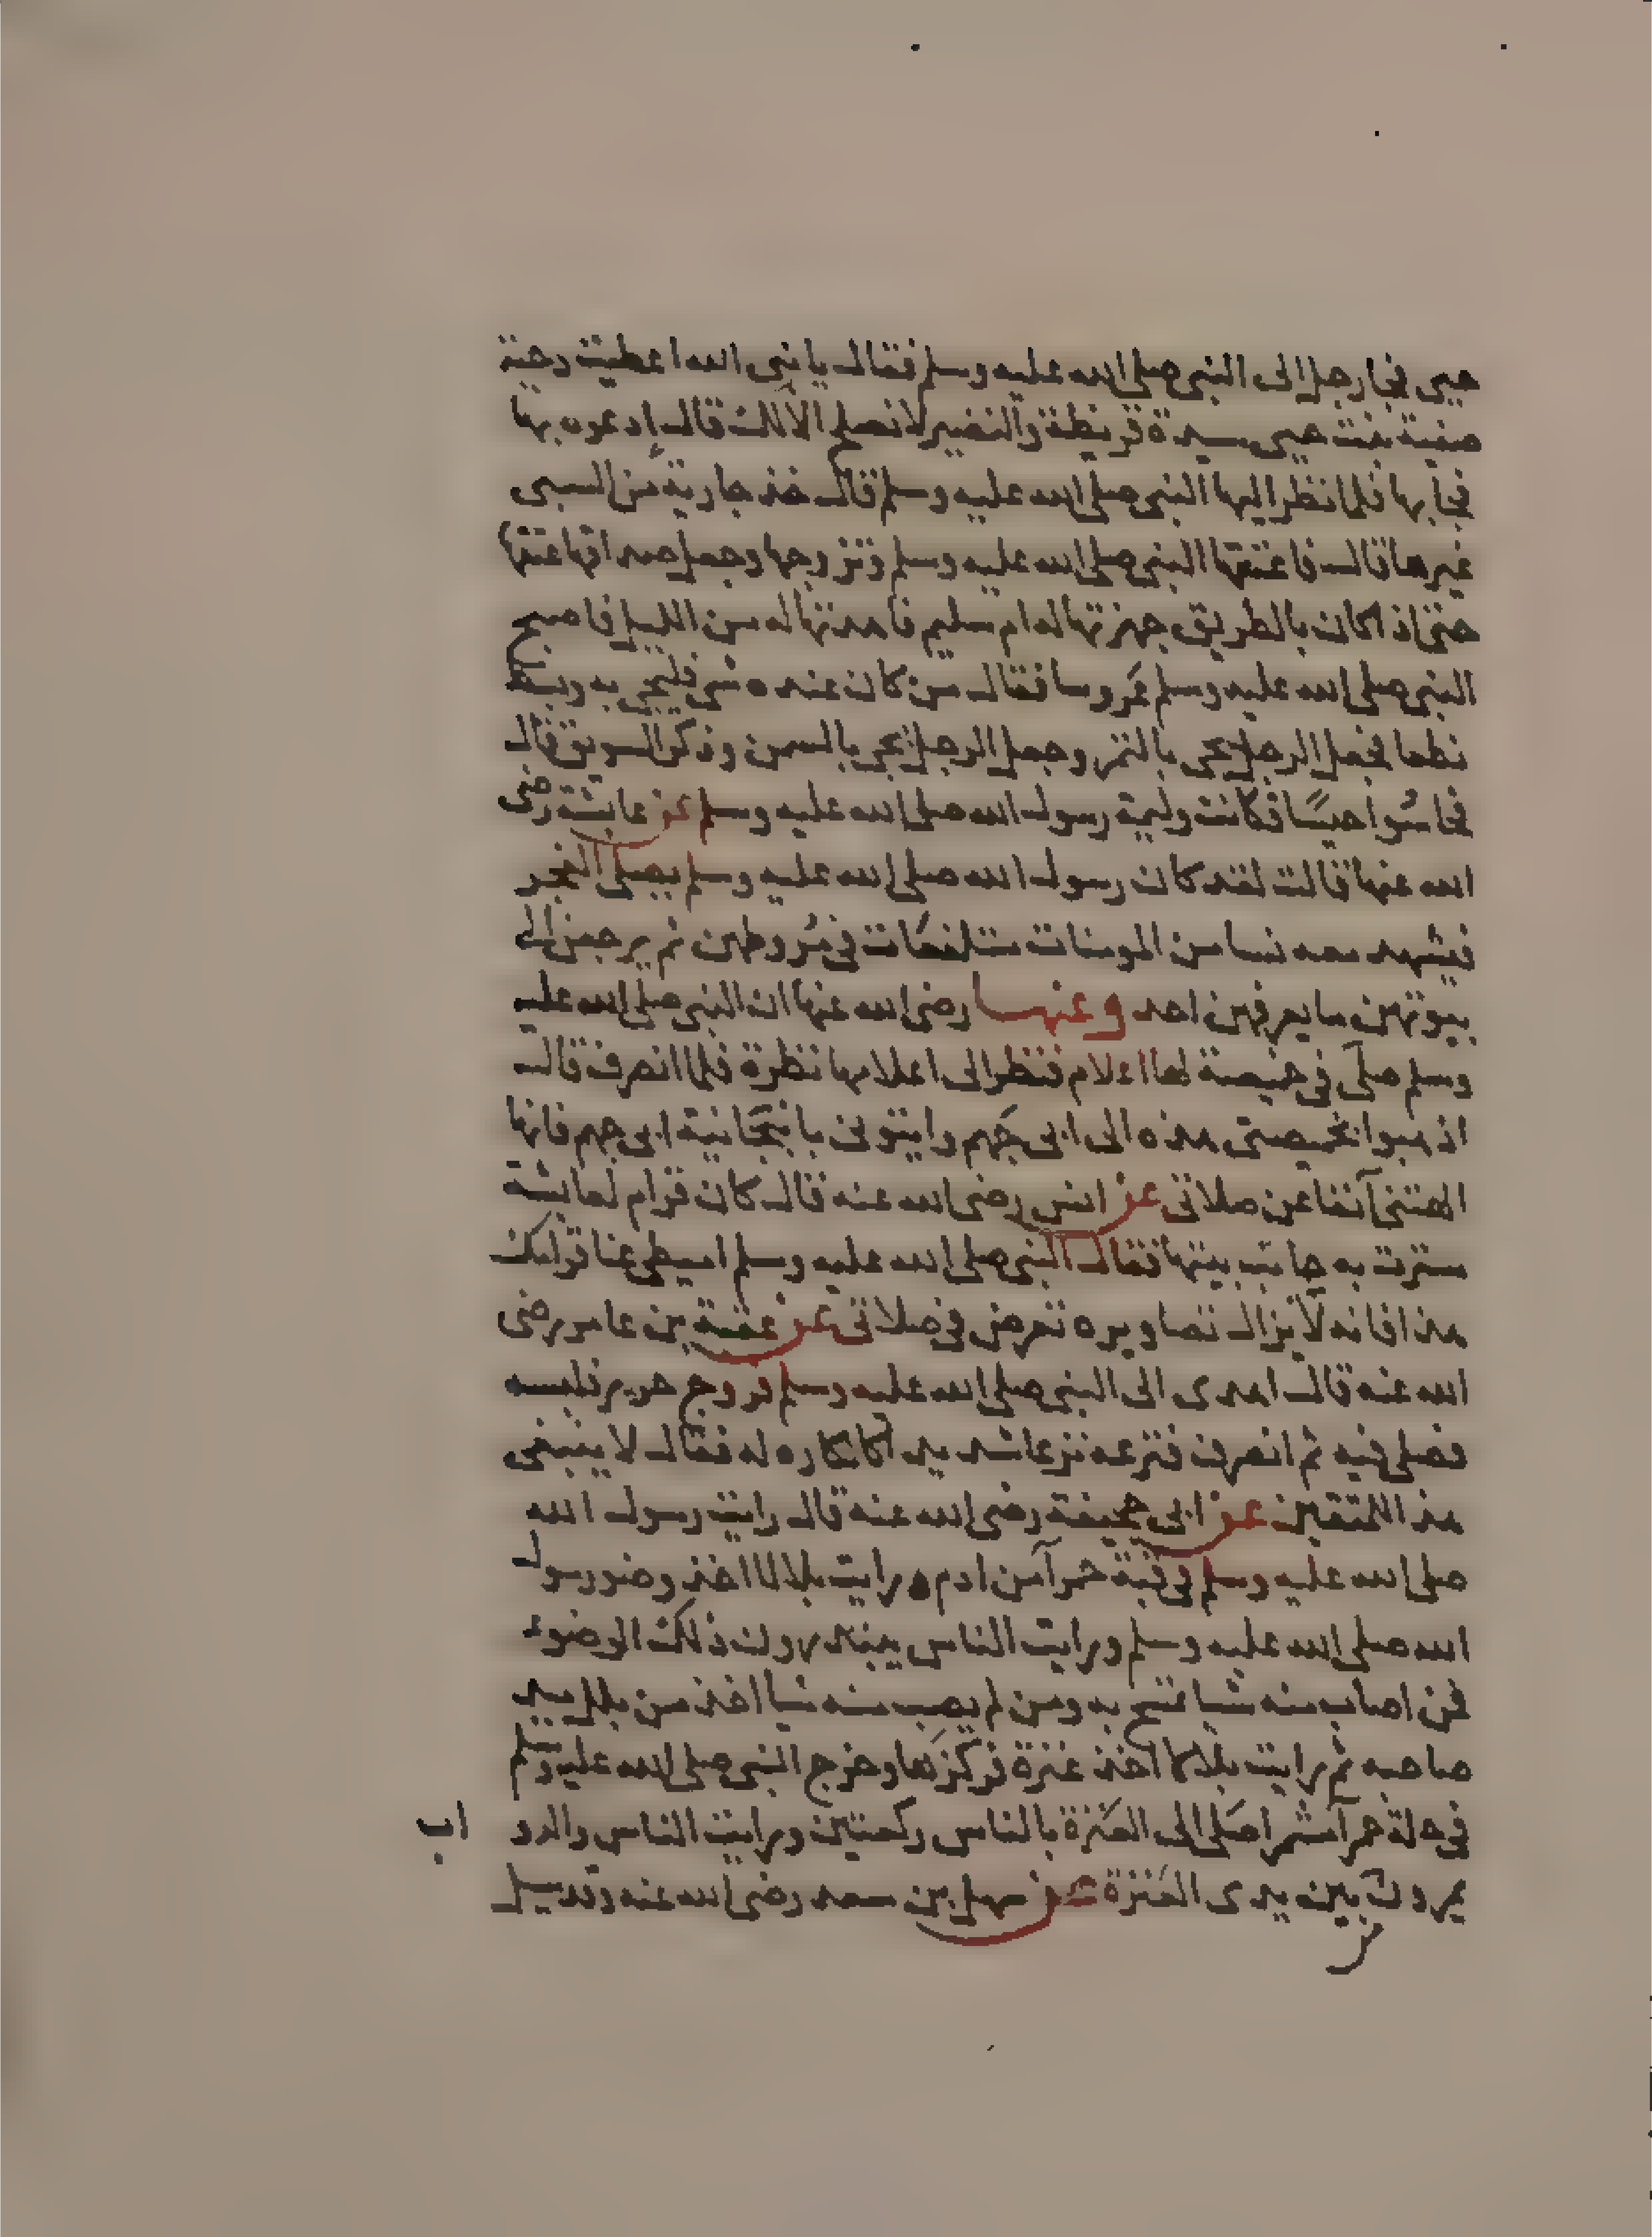 حيى فجا رجل الى النبي صلى الله عليه وسلم فقال يا نبي الله اعطيت دحية
صفية بنت حيى سيدة قريظة والنضير لا تصلح الا لك قال ادعوه بها
فجا بها فلما نظر اليها النبي صلى الله عليه وسلم قال خذ جارية من السبى
غيرها قال فاعتقها النبي صلى الله عليه وسلم وتزوجها وجعل صداقها عتقها
حتى اذا كان بالطريق جهزتها له ام سليم فاهدتها له من الليل فاصبح
النبي صلى الله عليه وسلم عروسا فقال من كان عنده شي فليجي به وبسط
نطعا فجعل الرجل يجي بالتمر وجعل الرجل يجي بالسمن وذكر السويق قال
فحاسوا حيسا فكانت وليمة رسول الله صلى الله عليه وسلم عن عايشة رضى
الله عنها قالت لقد كان رسول الله صلى الله عليه وسلم يصلى الفجر
فيشهد معه نسا من المومنات متلفعات في مروطهن ثم يرجعن الى
بيوتهن ما يعرفهن احد وعنها رضى الله عنها ان النبي صلى الله عليه
وسلم صلى في خميصة لها اعلام فنظر الى اعلامها نظرة فلما انصرف قال
اذهبوا بخميصتى هذه الى ابى جهم وايتونى بانبجانية ابى جهم فانها
الهتنى آنفا عن صلاتى عن انس رضى الله عنه قال كان قرام لعائشة
سترت به جانب بيتها فقال النبي صلى الله عليه وسلم اميطى عنا قرامك
هذا فانه لا يزال تصاويره تعرض في صلاتى عن عقبة بن عامر رضى
الله عنه قال اهدى الى النبي صلى الله عليه وسلم فروج حرير فلبسه
فصلى فيه ثم انصرف فنزعه نزعا شديدا كالكاره له فقال لا ينبغى
هذا للمتقين عن ابى جحيفة رضى الله عنه قال رايت رسول الله
صلى الله عليه وسلم في قبة حمرآ من ادم ورايت بلالا اخذ وضو رسول
الله صلى الله عليه وسلم ورايت الناس يبتدرون ذلك الوضوء
فمن اصاب منه شيا تمسح به ومن لم يصب منه شيا اخذ من بلل يد
صاحبه ثم رايت بلالا اخذ عنزة فركزها وخرج النبي صلى الله عليه وسلم
في حلة حمرآ مشمرا صلى الى العنزة بالناس ركعتين ورايت الناس والدو
اب
يمرون بين يدى العنزة عن سهل بن سعد رضى الله عنه وقد سيل